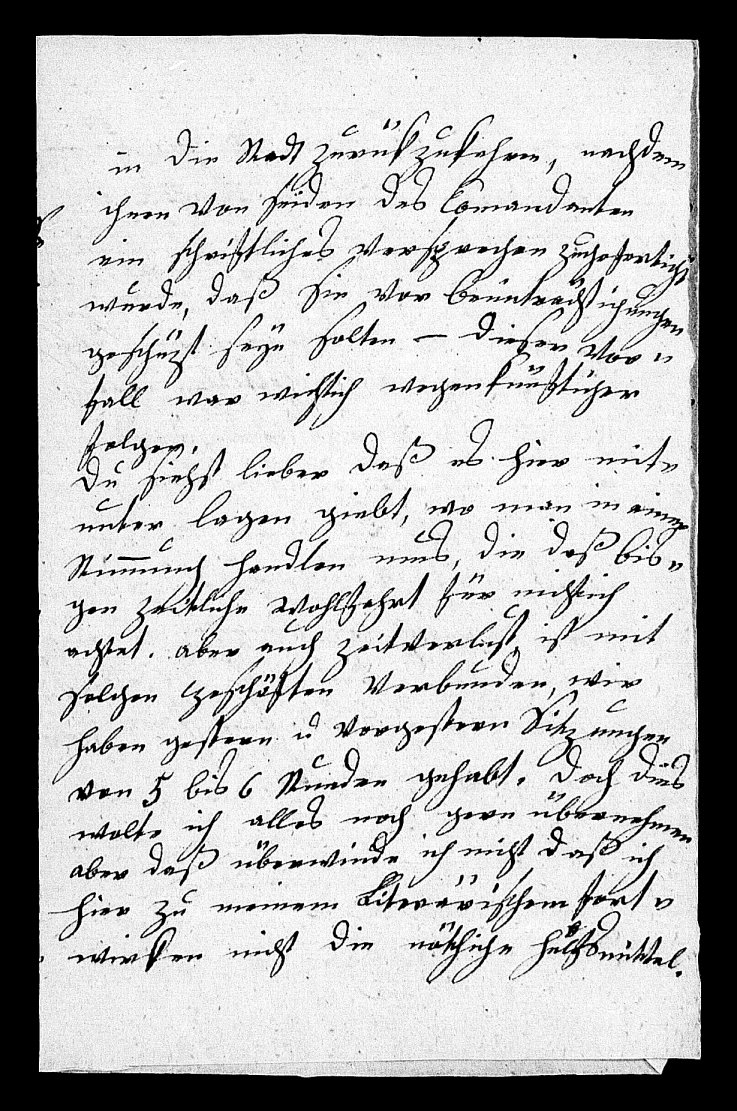 in die Stadt zurükzukehren, nachdem
ihnen von seiden des Comandanten
ein schriftliches versprechen zugefertigt
wurde, daß sie vor beeinträchtigungen
geschüzt seyn solten — dieser vor"
fall war wichtig wegen künftiger
folgen.
du siehst lieber daß es hier mit"
unter lagen giebt, wo man in einer
Stimmung handlen mus, die daß bis"
gen zeitliche wohlfahrt für nichtich
achtet. aber auch zeitverlust ist mit
solchen geschäften verbunden, wir
haben gestern u vorgestern Sitzungen
von 5 bis 6 Stunden gehabt. doch dies
wolte ich alles noch gern übernehmen
aber daß überwinde ich nicht daß ich
hier zu meinem Literärischem fort"
wirken nicht die nöthige hülfsmittel.